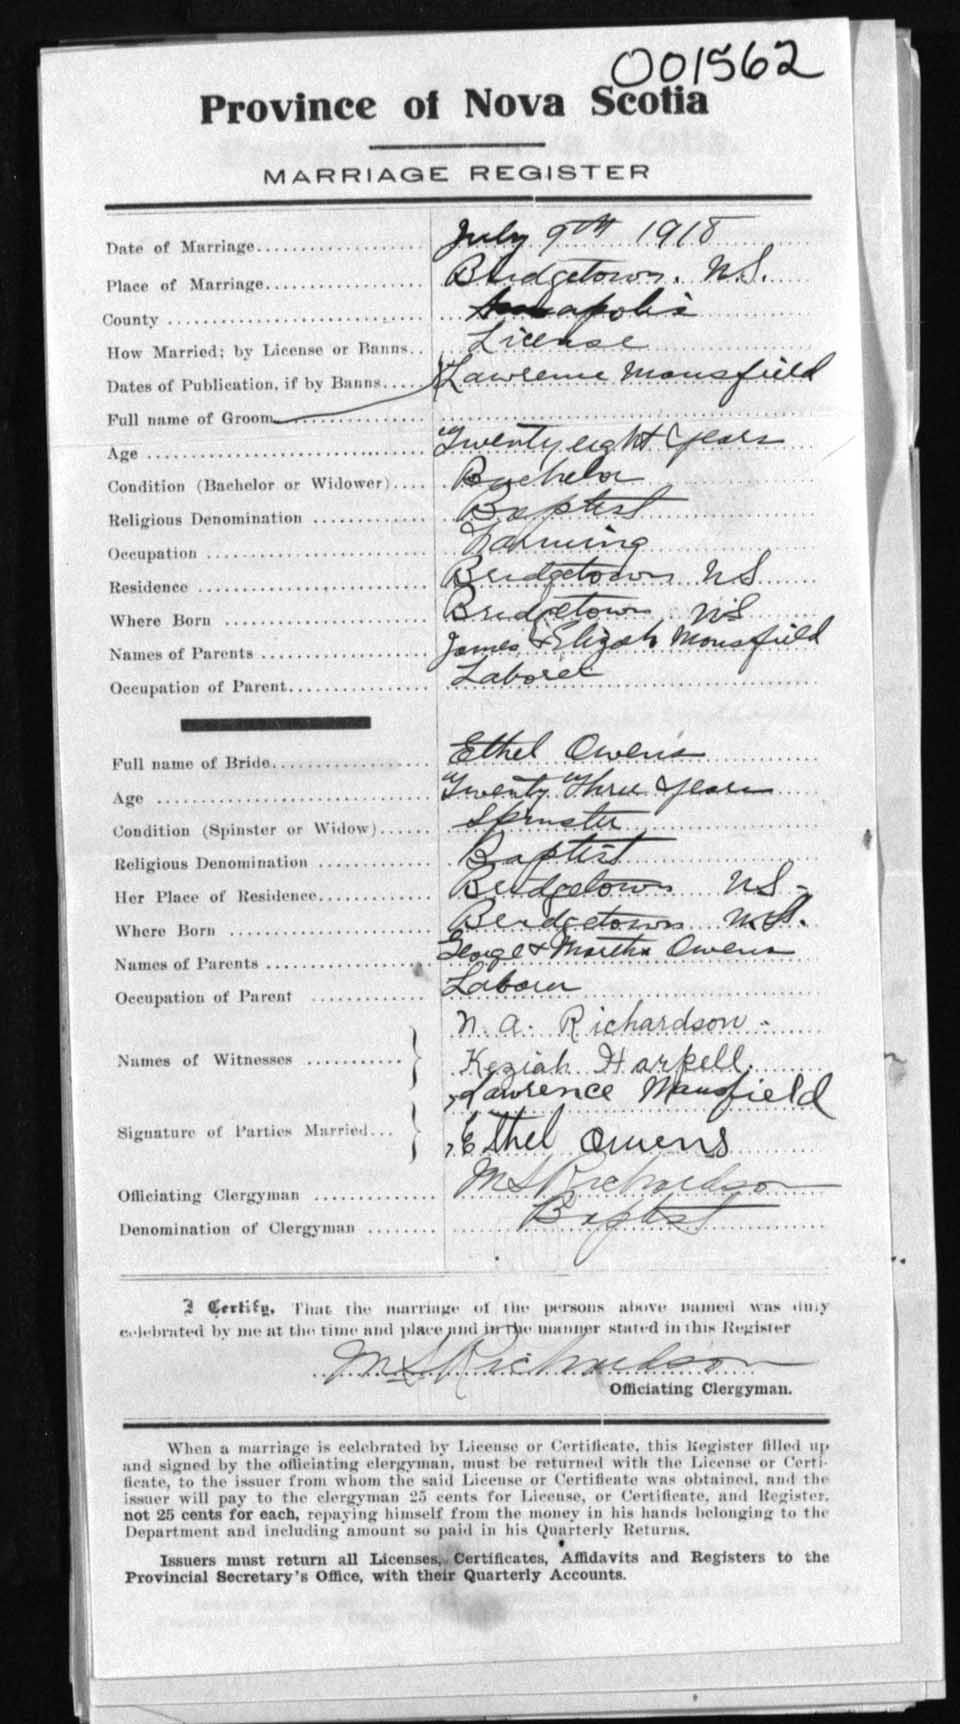 001562
Province of Nova Scotia
MARRIAGE REGISTER
Date of Marriage................... July 9TH 1918
Place of Marriage.................. Bridgetown. N.S.
County ............................ Annapolis
How Married; by License or Banns.. License
Dates of Publication, if by Banns..... Lawrence Mansfield
Full name of Groom
Age ............................... Twenty eight Years
Condition (Bachelor or Widower).... Bachelor
Religious Denomination ............ Baptist
Occupation ........................ Farming
Residence ......................... Bridgetown NS
Where Born ........................ Bridgetown NS
Names of Parents .................. James & Elizah Mansfield
Occupation of Parent............... Laborer
Full name of Bride................. Ethel Owens
Age ............................... Twenty Three Years
Condition (Spinster or Widow)...... Spinster
Religious Denomination ............ Baptist
Her Place of Residence............. Bridgetown NS -
Where Born ........................ Bridgetown N.S.
Names of Parents .................. George & Martha Owens
Occupation of Parent ............. Laborer
N. A. Richardson -
Names of Witnesses ........... } Keziah Harkell.
Lawrence Mansfield
Signature of Parties Married... } Ethel Owens
Officiating Clergyman ............. M S Richardson
Denomination of Clergyman ........ Baptist
I Certify, That the marriage of the persons above named was duly
celebrated by me at the time and place and in the manner stated in this Register
M S Richardson
Officiating Clergyman.
When a marriage is celebrated by License or Certificate, this Register filled up
and signed by the officiating clergyman, must be returned with the License or Certi-
ficate, to the issuer from whom the said License or Certificate was obtained, and the
issuer will pay to the clergyman 25 cents for License, or Certificate, and Register,
not 25 cents for each, repaying himself from the money in his hands belonging to the
Department and including amount so paid in his Quarterly Returns.
Issuers must return all Licenses, Certificates, Affidavits and Registers to the
Provincial Secretary's Office, with their Quarterly Accounts.